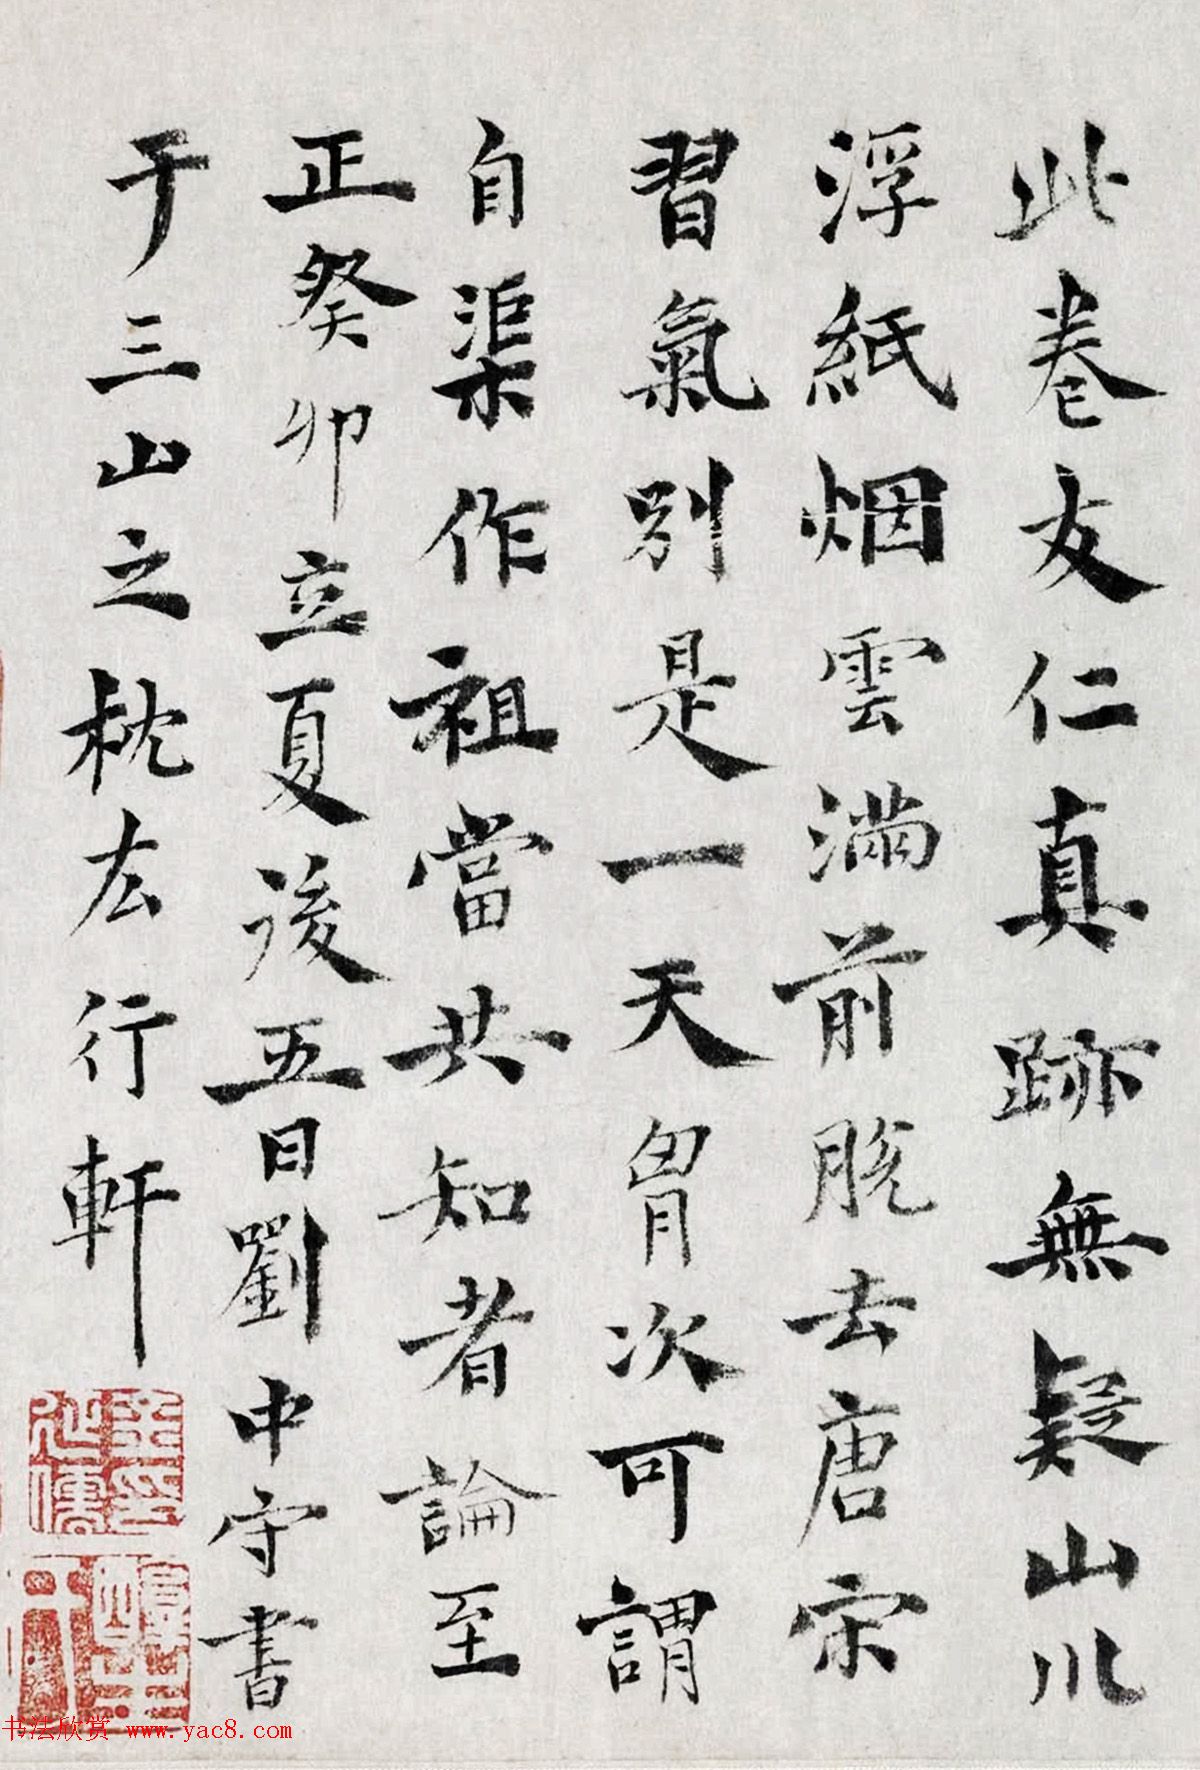 此卷友仁真跡無疑山川
浮紙烟雲滿前脫去唐宋
習氣別是一天胷次可謂
自渠作祖當共知者論至
正癸卯立夏後五日劉中守書
于三山之枕厷行軒
书法欣赏 www.yac8.com